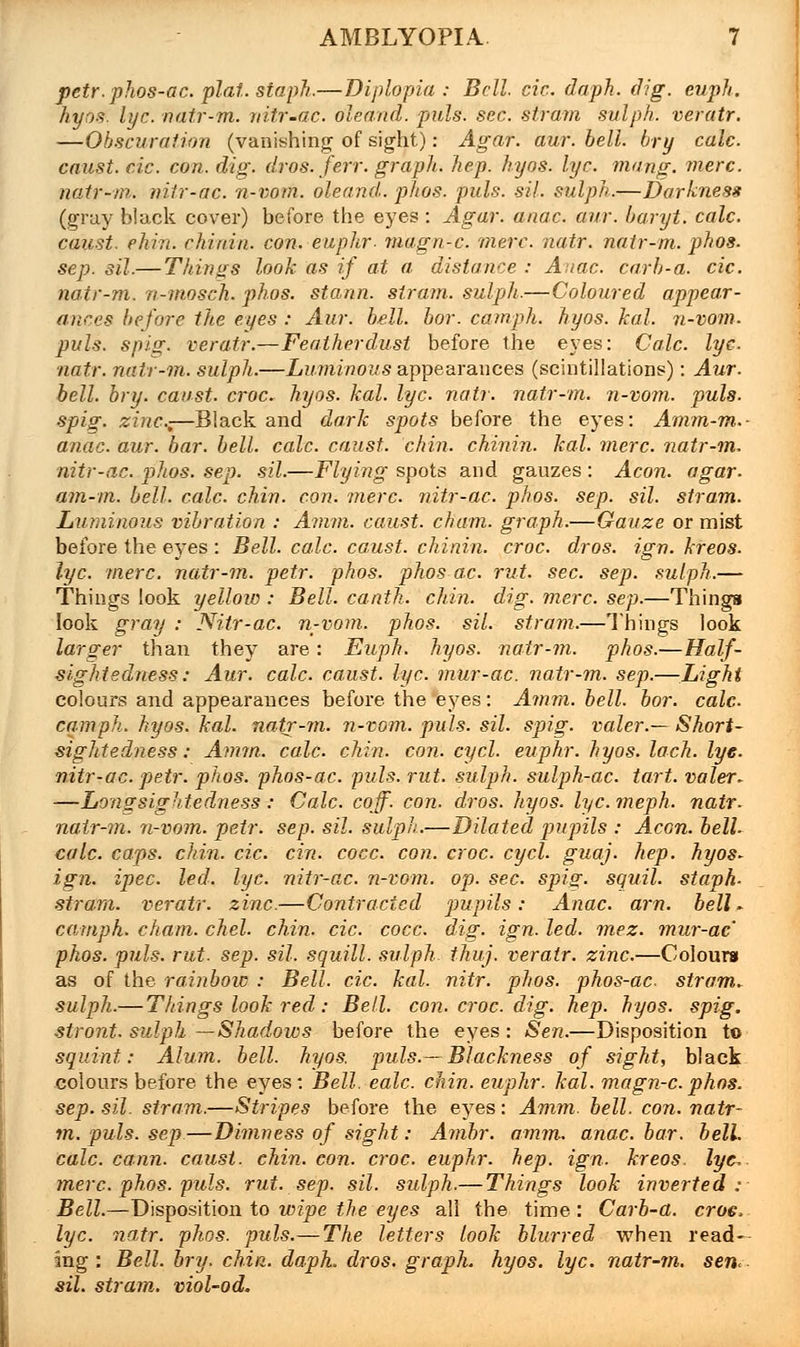 AMBLYOPIA 7
petr. phos-ac. plat. staph.—Diplopia : Bell. cic. daph. dig. euph.
hyos. lyc. natr-m. nitr-ac. oleand. puls. sec. stram sulph. veratr.
—Obscuration (vanishing of sight) : Agar. aur. bell. bry calc.
caust. cic. con. dig. dros. ferr. graph. hep. hyos. lyc. mang. merc.
natr-m. nitr-ac. n-vom. oleand. phos. puls. sil. sulph.—Darkness
(gray black cover) before the eyes : Agar. anac. aur. baryt. calc.
caust. chin. chinin. con. euphr. magn-c. merc. natr. natr-m. phos.
sep. sil.—Things look as if at a distance : Anac. carb-a. cic.
natr-m. n-mosch. phos. stann. stram. sulph.—Coloured appear-
ances before the eyes : Aur. bell. bor. camph. hyos. kal. n-vom.
puls. spig. veratr.—Featherdust before the eyes: Calc. lyc.
natr. natr-m. sulph.—Luminous appearances (scintillations) : Aur.
bell. bry. caust. croc. hyos. kal. lyc. natr. natr-m. n-vom. puls.
spig. zinc.—Black and dark spots before the eyes: Amm-m.
anac. aur. bar. bell. calc. caust. chin. chinin. kal. merc. natr-m.
nitr-ac. phos. sep. sil.—Flying spots and gauzes : Acon. agar.
am-m. bell. calc. chin. con. merc. nitr-ac. phos. sep. sil. stram.
Luminous vibration : Amm. caust. cham. graph.—Gauze or mist
before the eyes : Bell. calc. caust. chinin. croc. dros. ign. kreos.
lyc. merc. natr-m. petr. phos. phos ac. rut. sec. sep. sulph.—
Things look yellow : Bell. canth. chin. dig. merc. sep.—Things
look gray : Nitr-ac. n-vom. phos. sil. stram.—Things look
larger than they are : Euph. hyos. natr-m. phos.—Half-
sightedness: Aur. calc. caust. lyc. mur-ac. natr-m. sep.—Light
colours and appearances before the eyes: Amm. bell. bor. calc.
camph. hyos. kal. natr-m. n-vom. puls. sil. spig. valer.—Short-
sightedness : Amm. calc. chin. con. cycl. euphr. hyos. lach. lyc.
nitr-ac. petr. phos. phos-ac. puls. rut. sulph. sulph-ac. tart. valer.
—Longsightedness : Calc. coff. con. dros. hyos. lyc. meph. natr.
natr-m. n-vom. petr. sep. sil. sulph.—Dilated pupils : Acon. bell.
calc. caps. chin. cic. cin. cocc. con. croc. cycl. guaj. hep. hyos.
ign. ipec. led. lyc. nitr-ac. n-vom. op. sec. spig. squil. staph.
stram. veratr. zinc.—Contracted pupils : Anac. arn. bell.
camph. cham. chel. chin. cic. cocc. dig. ign. led. mez. mur-ac
phos. puls. rut. sep. sil. squill. sulph thuj. veratr. zinc.—Colours
as of the rainbow : Bell. cic. kal. nitr. phos. phos-ac. stram.
sulph.—Things look red : Bell. con. croc. dig. hep. hyos. spig.
stront. sulph—Shadows before the eyes : Sen.—Disposition to
squint : Alum. bell. hyos. puls.—Blackness of sight, black
colours before the eyes : Bell. calc. chin. euphr. kal. magn-c. phos.
sep. sil. stram.—Stripes before the eyes: Amm. bell. con. natr-
m. puls. sep.—Dimness of sight : Ambr. amm. anac. bar. bell.
calc. cann. caust. chin. con. croc. euphr. hep. ign. kreos. lyc.
merc. phos. puls. rut. sep. sil. sulph.—Things look inverted :
Bell.—Disposition to wipe the eyes all the time : Carb-a. croc.
lyc. natr. phos. puls.—The letters look blurred when read-
ing : Bell. bry. chin. daph. dros. graph. hyos. lyc. natr-m. sen.
sil. stram. viol-od.